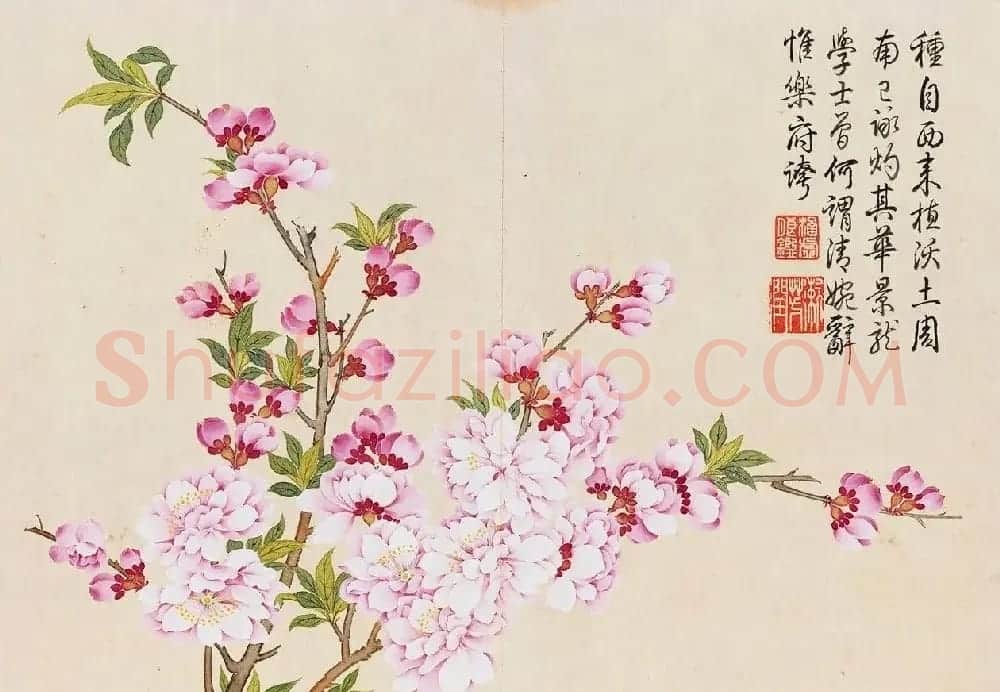 種自西来植沃土周
南已詠灼其華景龍
學士曾何謂清婉辭
惟樂府誇
Shufaziliao.COM